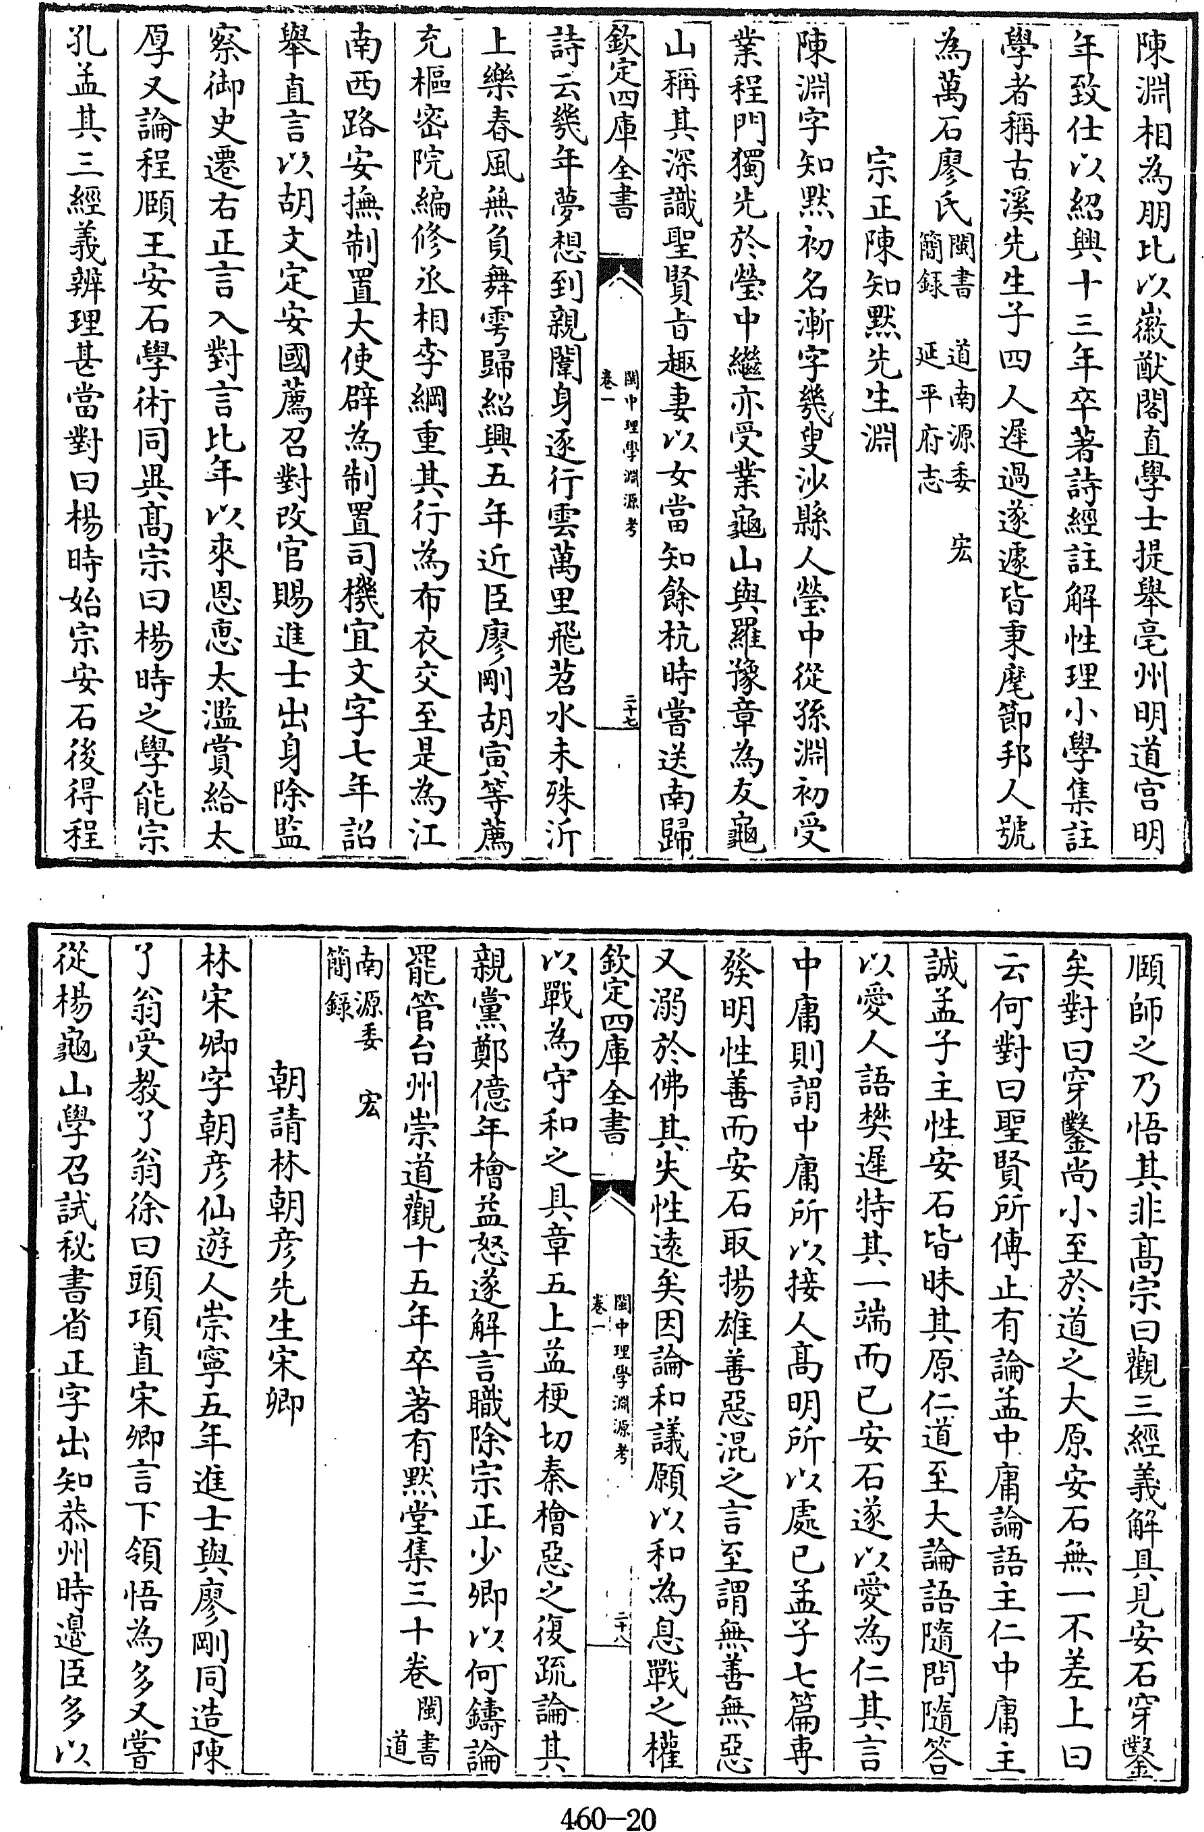 陳淵相為朋比以徽猷閣直學士提舉亳州明道宫明
年致仕以紹興十三年卒著詩經註解性理小學集註
學者稱古溪先生子四人遲過遂遽皆秉麾節邦人號
為萬石廖氏閩書　道南源委　宏
簡録　延平府志
宗正陳知默先生淵
陳淵字知默初名漸字幾叟沙縣人瑩中從孫淵初受
業程門獨先於瑩中繼亦受業龜山與羅豫章為友龜
山稱其深識聖賢旨趣妻以女當知餘杭時嘗送南歸
欽定四庫全書
閩中理學淵源考
卷一
二十七
詩云幾年夢想到親闈身逐行雲萬里飛苕水未殊沂
上樂春風無負舞雩歸紹興五年近臣廖剛胡寅等薦
充樞密院編修丞相李綱重其行為布衣交至是為江
南西路安撫制置大使辟為制置司機宜文字七年詔
舉直言以胡文定安國薦召對改官賜進士出身除監
察御史遷右正言入對言比年以來恩恵太濫賞給太
厚又論程頤王安石學術同異髙宗曰楊時之學能宗
孔孟其三經義辨理甚當對曰楊時始宗安石後得程
頤師之乃悟其非髙宗曰觀三經義解具見安石穿鑿
矣對曰穿鑿尚小至於道之大原安石無一不差上曰
云何對曰聖賢所傳止有論孟中庸論語主仁中庸主
誠孟子主性安石皆昧其原仁道至大論語隨問隨答
以愛人語樊遲特其一端而已安石遂以愛為仁其言
中庸則謂中庸所以接人髙明所以處已孟子七篇専
發明性善而安石取揚雄善惡混之言至謂無善無惡
又溺於佛其失性遠矣因論和議願以和為息戰之權
欽定四庫全書
閩中理學淵源考
卷一
二十八
以戰為守和之具章五上益梗切秦檜惡之復疏論其
親黨鄭億年檜益怒遂解言職除宗正少卿以何鑄論
罷管台州崇道觀十五年卒著有默堂集三十卷閩書
道
南源委　宏
簡録
朝請林朝彦先生宋卿
林宋卿字朝彦仙遊人崇寧五年進士與廖剛同造陳
了翁受教了翁徐曰頭項直宋卿言下領悟為多又嘗
從楊龜山學召試秘書省正字出知恭州時邊臣多以
460-20